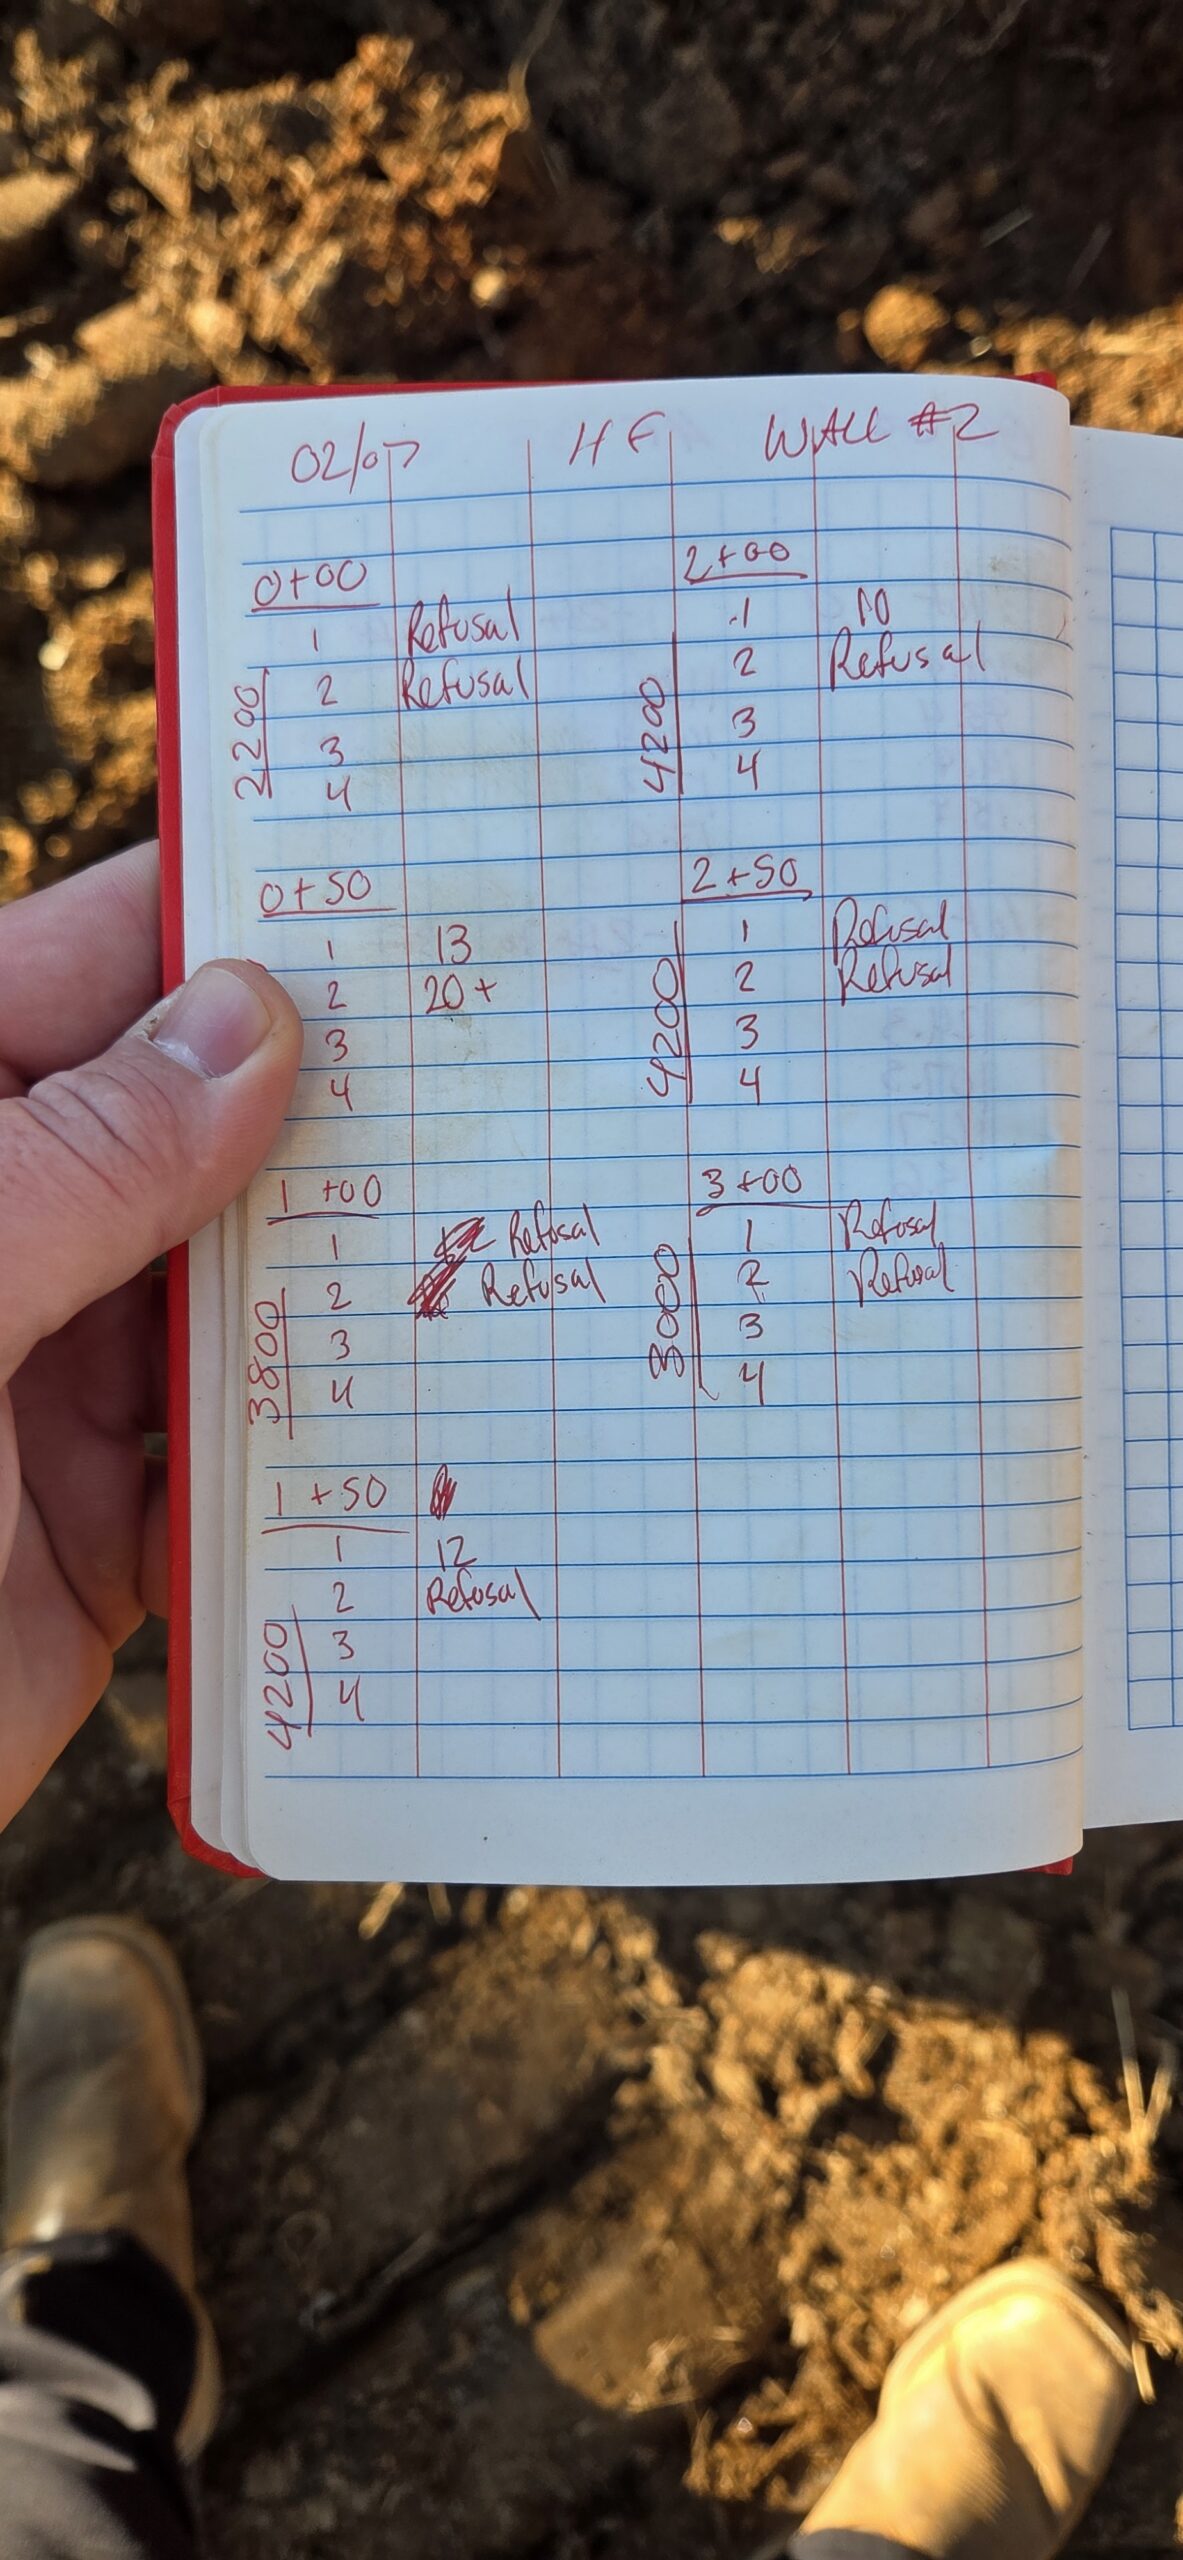 02/07 HF WALL #2
0+00
1 Refusal
2 Refusal
3
4
2200
0+50
1 13
2 20+
3
4
1+00
1 Refusal
2 Refusal
3
4
3800
1+50
1 12
2 Refusal
3
4
4200
2+00
1 10
2 Refusal
3
4
4200
2+50
1 Refusal
2 Refusal
3
4
4200
3+00
1 Refusal
2 Refusal
3
4
3000